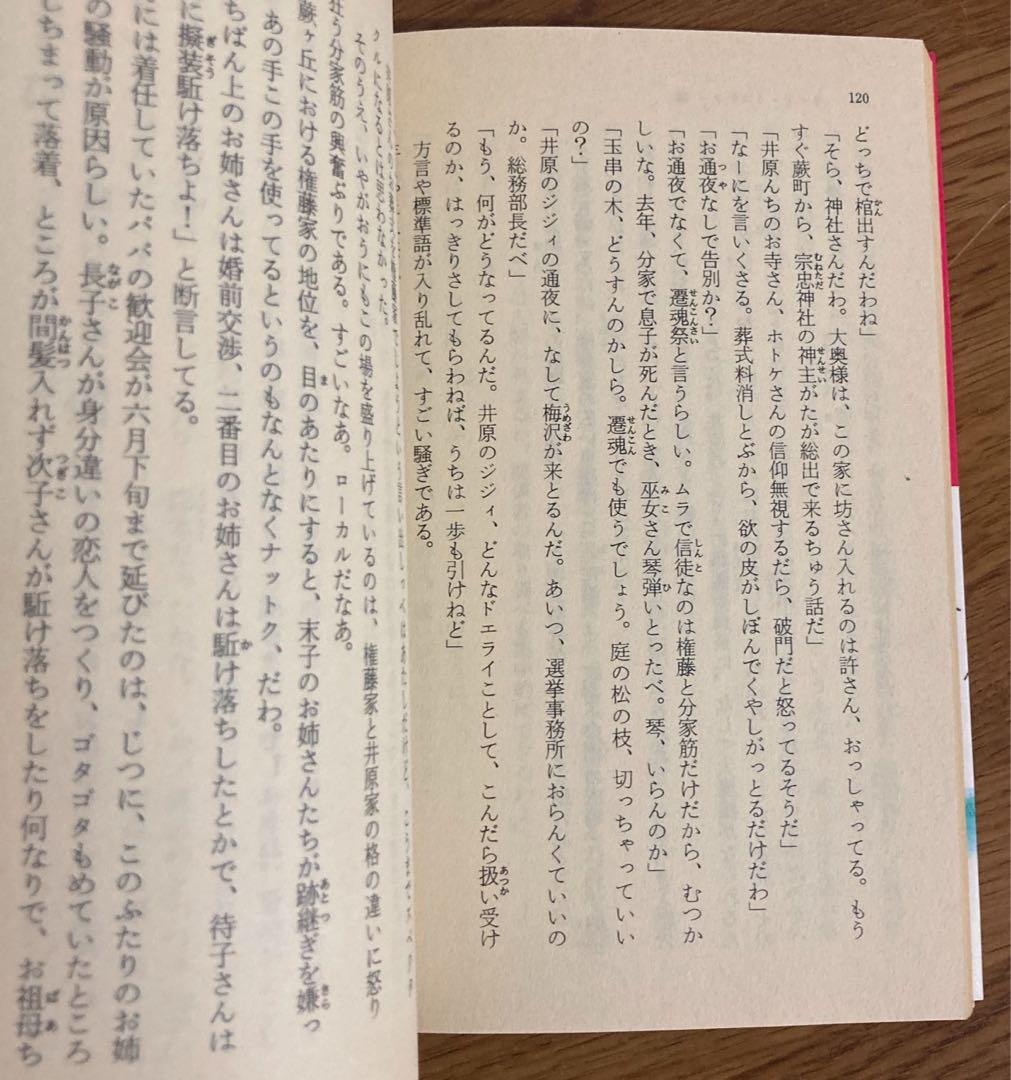 120
どっちで棺出すんだわね」
「そら、神社さんだわ。大奥様は、この家に坊さん入れるのは許さん、おっしゃってる。もう
すぐ蕨町から、宗忠神社の神主がたが総出で来るちゅう話だ」
「井原んちのお寺さん、ホトケさんの信仰無視するだら、破門だと怒ってるそうだ」
「なーにを言いくさる。葬式料消しとぶから、欲の皮がしぼんでくやしがっとるだけだわ」
「お通夜なしで告別か?」
「お通夜でなくて、遷魂祭と言うらしい。ムラで信徒なのは権藤と分家筋だけだから、むつか
しいな。去年、分家で息子が死んだとき、巫女さん琴弾いとったべ。琴、いらんのか」
「玉串の木、どうすんのかしら。遷魂でも使うでしょう。庭の松の枝、切っちゃっていい
の?」
「井原のジジィの通夜に、なして梅沢が来とるんだ。あいつ、選挙事務所におらんくていいの
か。総務部長だべ」
「もう、何がどうなってるんだ。井原のジジィ、どんなドエライことして、こんだら扱い受け
るのか、はっきりさしてもらわねば、うちは一歩も引けねど」
方言や標準語が入り乱れて、すごい騒ぎである。
クルになるとは思わなかった。
そのうえ、いやがおうにもこの場を盛り上げているのは、権藤家と井原家の格の違いに怒り
狂う分家筋の興奮ぶりである。すごいなあ。ローカルだなあ。
蕨ヶ丘における権藤家の地位を、目のあたりにすると、末子のお姉さんたちが跡継ぎを嫌っ
あの手この手を使ってるというのもなんとなくナットク、だわ。
ちばん上のお姉さんは婚前交渉、二番目のお姉さんは駈け落ちしたとかで、待子さんは
に擬装駈け落ちよ!」と断言してる。
には着任していたパパの歓迎会が六月下旬まで延びたのは、じつに、このふたりのお姉
の騒動が原因らしい。長子さんが身分違いの恋人をつくり、ゴタゴタもめていたところ
しちまって落着、ところが間髪入れず次子さんが駈け落ちをしたり何なりで、お祖母ち